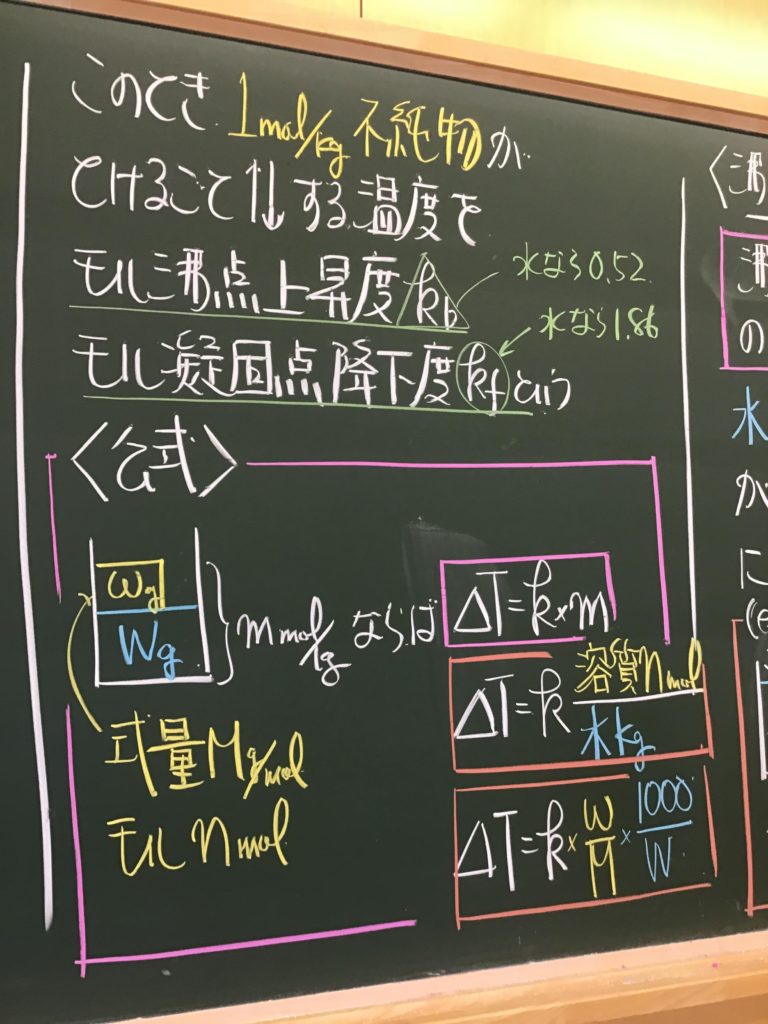 このとき 1mol/kg 不純物が
とけること⇅する温度を
モル沸点上昇度 kb
水なら0.52
水なら1.86
モル凝固点降下度 kf という
〈公式〉
wg
Wg
m mol/kg ならば
ΔT=k×m
ΔT=k 溶質nmol/水kg
式量M g/mol
モル n mol
ΔT=k×w/M×1000/W
〈沸
沸
の
水
か
に